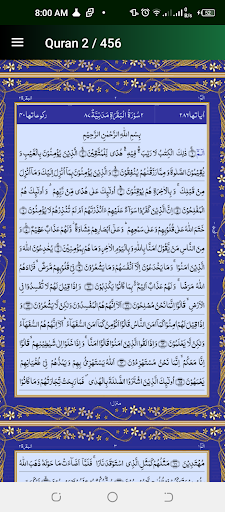 8:00 AM
Quran 2 / 456
اٰیاتها ۲۸۶ ۲ سُوْرَةُ الْبَقَرَةِ مَدَنِيَّةٌ ركوعاتها ۴۰
بِسْمِ اللّٰهِ الرَّحْمٰنِ الرَّحِيْمِ
الٓمّٓ ذٰلِكَ الْكِتٰبُ لَا رَيْبَ فِيْهِ هُدًى لِّلْمُتَّقِيْنَ الَّذِيْنَ يُؤْمِنُوْنَ بِالْغَيْبِ وَ
يُقِيْمُوْنَ الصَّلٰوةَ وَمِمَّا رَزَقْنٰهُمْ يُنْفِقُوْنَ وَالَّذِيْنَ يُؤْمِنُوْنَ بِمَآ اُنْزِلَ اِلَيْكَ وَمَآ اُنْزِلَ
مِنْ قَبْلِكَ وَبِالْاٰخِرَةِ هُمْ يُوْقِنُوْنَ اُولٰٓئِكَ عَلٰى هُدًى مِّنْ رَّبِّهِمْ وَاُولٰٓئِكَ هُمُ
الْمُفْلِحُوْنَ اِنَّ الَّذِيْنَ كَفَرُوْا سَوَآءٌ عَلَيْهِمْ ءَاَنْذَرْتَهُمْ اَمْ لَمْ تُنْذِرْهُمْ لَا يُؤْمِنُوْنَ
خَتَمَ اللّٰهُ عَلٰى قُلُوْبِهِمْ وَعَلٰى سَمْعِهِمْ وَعَلٰٓى اَبْصَارِهِمْ غِشَاوَةٌ وَّلَهُمْ عَذَابٌ عَظِيْمٌ وَ
مِنَ النَّاسِ مَنْ يَّقُوْلُ اٰمَنَّا بِاللّٰهِ وَبِالْيَوْمِ الْاٰخِرِ وَمَا هُمْ بِمُؤْمِنِيْنَ يُخٰدِعُوْنَ اللّٰهَ وَ
الَّذِيْنَ اٰمَنُوْا وَمَا يَخْدَعُوْنَ اِلَّآ اَنْفُسَهُمْ وَمَا يَشْعُرُوْنَ فِيْ قُلُوْبِهِمْ مَّرَضٌ فَزَادَهُمُ
اللّٰهُ مَرَضًا وَلَهُمْ عَذَابٌ اَلِيْمٌ بِمَا كَانُوْا يَكْذِبُوْنَ وَاِذَا قِيْلَ لَهُمْ لَا تُفْسِدُوْا فِي
الْاَرْضِ قَالُوْٓا اِنَّمَا نَحْنُ مُصْلِحُوْنَ اَلَآ اِنَّهُمْ هُمُ الْمُفْسِدُوْنَ وَلٰكِنْ لَّا يَشْعُرُوْنَ وَ
اِذَا قِيْلَ لَهُمْ اٰمِنُوْا كَمَآ اٰمَنَ النَّاسُ قَالُوْٓا اَنُؤْمِنُ كَمَآ اٰمَنَ السُّفَهَآءُ اَلَآ اِنَّهُمْ هُمُ السُّفَهَآءُ
وَلٰكِنْ لَّا يَعْلَمُوْنَ وَاِذَا لَقُوا الَّذِيْنَ اٰمَنُوْا قَالُوْٓا اٰمَنَّا وَاِذَا خَلَوْا اِلٰى شَيٰطِيْنِهِمْ قَالُوْٓا
اِنَّا مَعَكُمْ اِنَّمَا نَحْنُ مُسْتَهْزِءُوْنَ اَللّٰهُ يَسْتَهْزِئُ بِهِمْ وَيَمُدُّهُمْ فِيْ طُغْيَانِهِمْ
يَعْمَهُوْنَ اُولٰٓئِكَ الَّذِيْنَ اشْتَرَوُا الضَّلٰلَةَ بِالْهُدٰى فَمَا رَبِحَتْ تِّجَارَتُهُمْ وَمَا كَانُوْا
مُهْتَدِيْنَ مَثَلُهُمْ كَمَثَلِ الَّذِي اسْتَوْقَدَ نَارًا فَلَمَّآ اَضَآءَتْ مَا حَوْلَهٗ ذَهَبَ اللّٰهُ